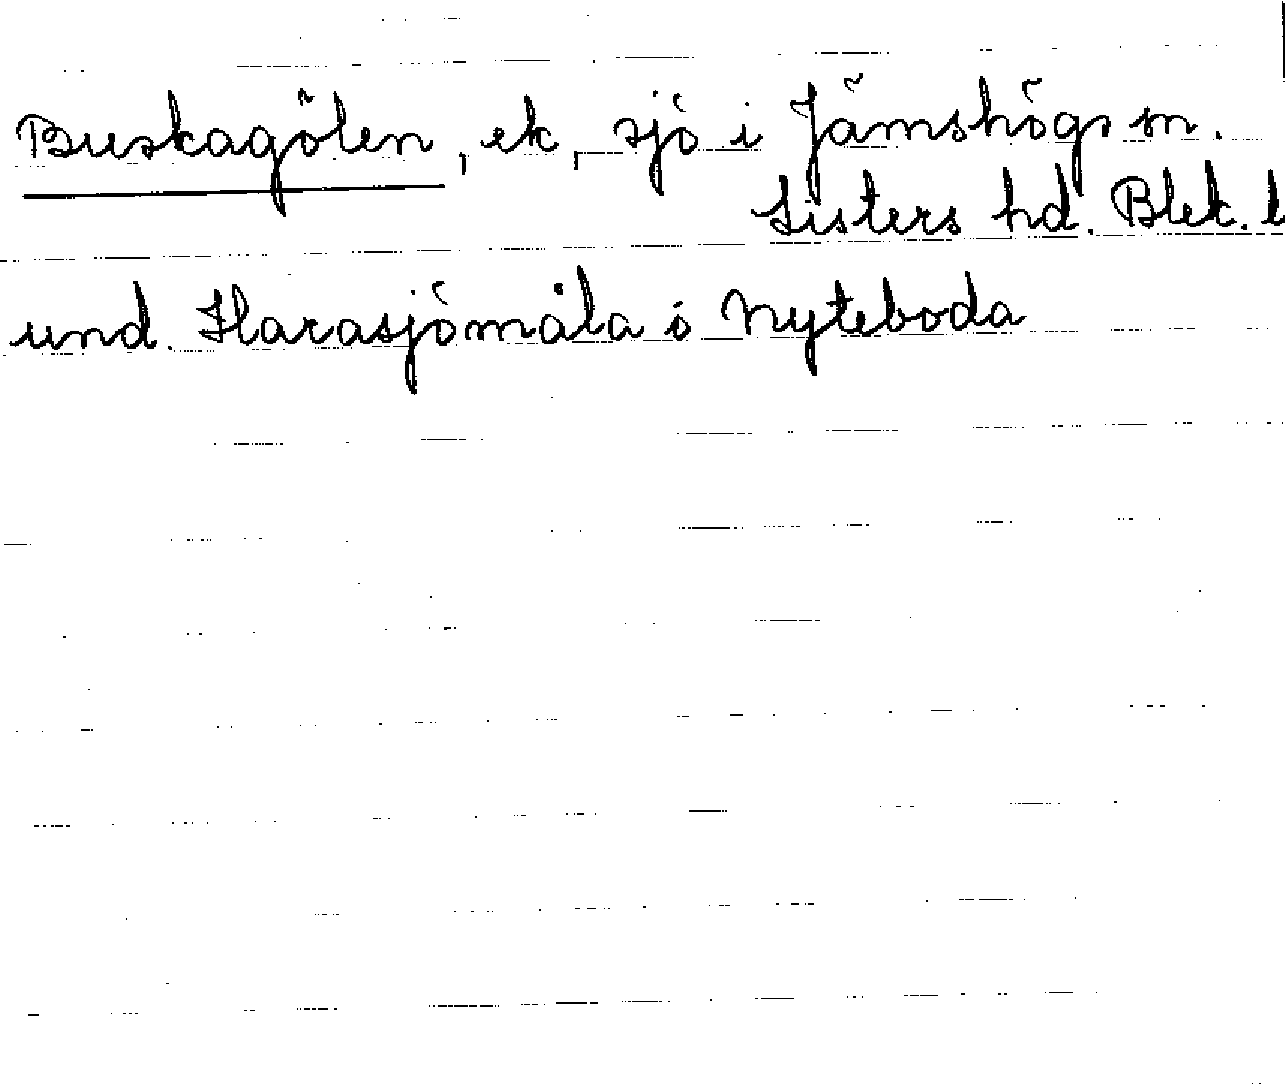 Buskagölen, ek, sjö i Jämshögs sn.
Listers hd. Blek. l
und. Harasjömåla o Nyteboda